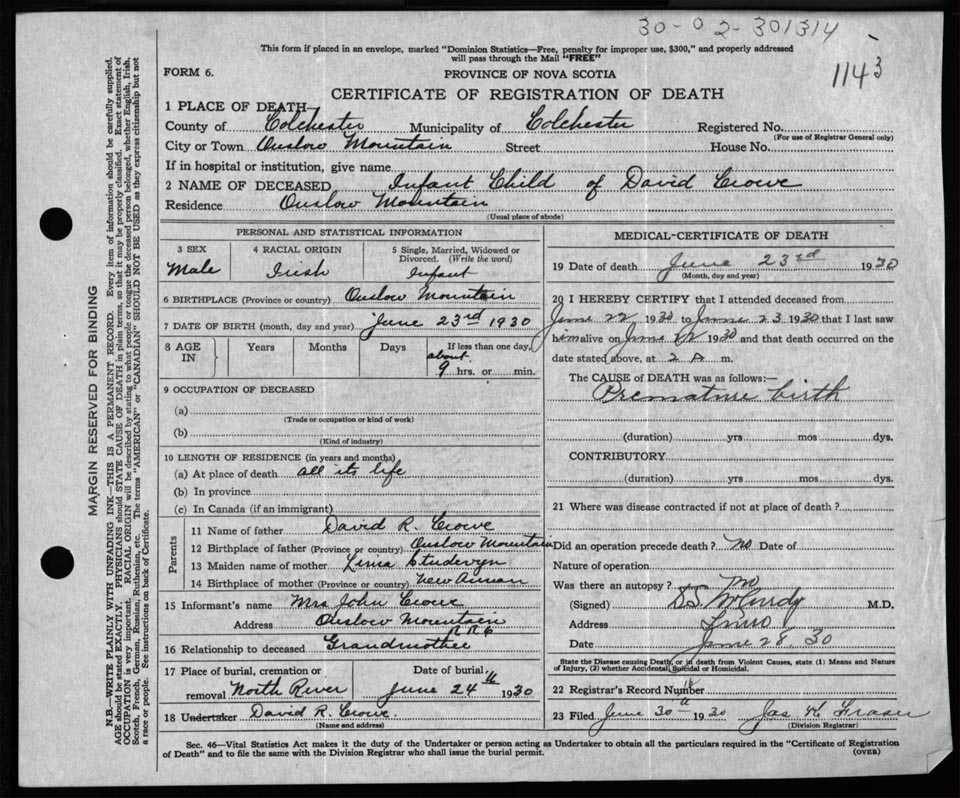 30-02-301314
1143
This form if placed in an envelope, marked "Dominion Statistics—Free, penalty for improper use, $300," and properly addressed
will pass through the Mail "FREE"
FORM 6.
PROVINCE OF NOVA SCOTIA
CERTIFICATE OF REGISTRATION OF DEATH
1 PLACE OF DEATH
County of Colchester Municipality of Colchester Registered No.
(For use of Registrar General only)
City or Town Onslow Mountain Street House No.
If in hospital or institution, give name
2 NAME OF DECEASED Infant Child of David Crowe
Residence Onslow Mountain
(Usual place of abode)
PERSONAL AND STATISTICAL INFORMATION
3 SEX Male
4 RACIAL ORIGIN Irish
5 Single, Married, Widowed or
Divorced. (Write the word)
Infant
6 BIRTHPLACE (Province or country) Onslow Mountain
7 DATE OF BIRTH (month, day and year) June 23rd 1930
8 AGE IN Years Months Days If less than one day,
about
9 hrs. or min.
9 OCCUPATION OF DECEASED
(a)
(Trade or occupation or kind of work)
(b)
(Kind of industry)
10 LENGTH OF RESIDENCE (in years and months)
(a) At place of death all its life
(b) In province
(c) In Canada (if an immigrant)
Parents
11 Name of father David R. Crowe
12 Birthplace of father (Province or country) Onslow Mountain
13 Maiden name of mother
14 Birthplace of mother (Province or country) New Annan
15 Informant's name Mrs John Crowe
Address Onslow Mountain
R R 6
16 Relationship to deceased Grandmother
17 Place of burial, cremation or
removal North River
Date of burial
June 24th 1930
18 Undertaker David R. Crowe.
(Name and address)
MEDICAL-CERTIFICATE OF DEATH
19 Date of death June 23rd 1930
(Month, day and year)
20 I HEREBY CERTIFY that I attended deceased from
June 22 1930 to June 23 1930 that I last saw
him alive on June 22 1930 and that death occurred on the
date stated above, at 2 A m.
The CAUSE of DEATH was as follows:—
Premature birth
(duration) yrs mos dys.
CONTRIBUTORY
(duration) yrs. mos. dys.
21 Where was disease contracted if not at place of death?
Did an operation precede death? no Date of
Nature of operation
Was there an autopsy? no
(Signed) S.S. McCurdy M.D.
Address Truro
Date June 28 30
State the Disease causing Death, or in death from Violent Causes, state (1) Means and Nature
of Injury, (2) whether Accidental, Suicidal or Homicidal.
22 Registrar's Record Number
23 Filed June 30th 1930 Jas H Fraser
(Division Registrar)
Sec. 46—Vital Statistics Act makes it the duty of the Undertaker or person acting as Undertaker to obtain all the particulars required in the "Certificate of Registration
of Death" and to file the same with the Division Registrar who shall issue the burial permit.
(OVER)
MARGIN RESERVED FOR BINDING
N.B.—WRITE PLAINLY WITH UNFADING INK—THIS IS A PERMANENT RECORD. Every item of information should be carefully supplied.
AGE should be stated EXACTLY. PHYSICIANS should STATE CAUSE OF DEATH in plain terms, so that it may be properly classified. Exact statement of
OCCUPATION is very important. RACIAL ORIGIN will be described by stating to what people or tongue the deceased person belonged, whether English, Irish,
Scotch, French, German, Russian, Ruthenian, etc. The terms "AMERICAN" or "CANADIAN" SHOULD NOT BE USED as they express citizenship but not
a race or people. See instructions on back of Certificate.